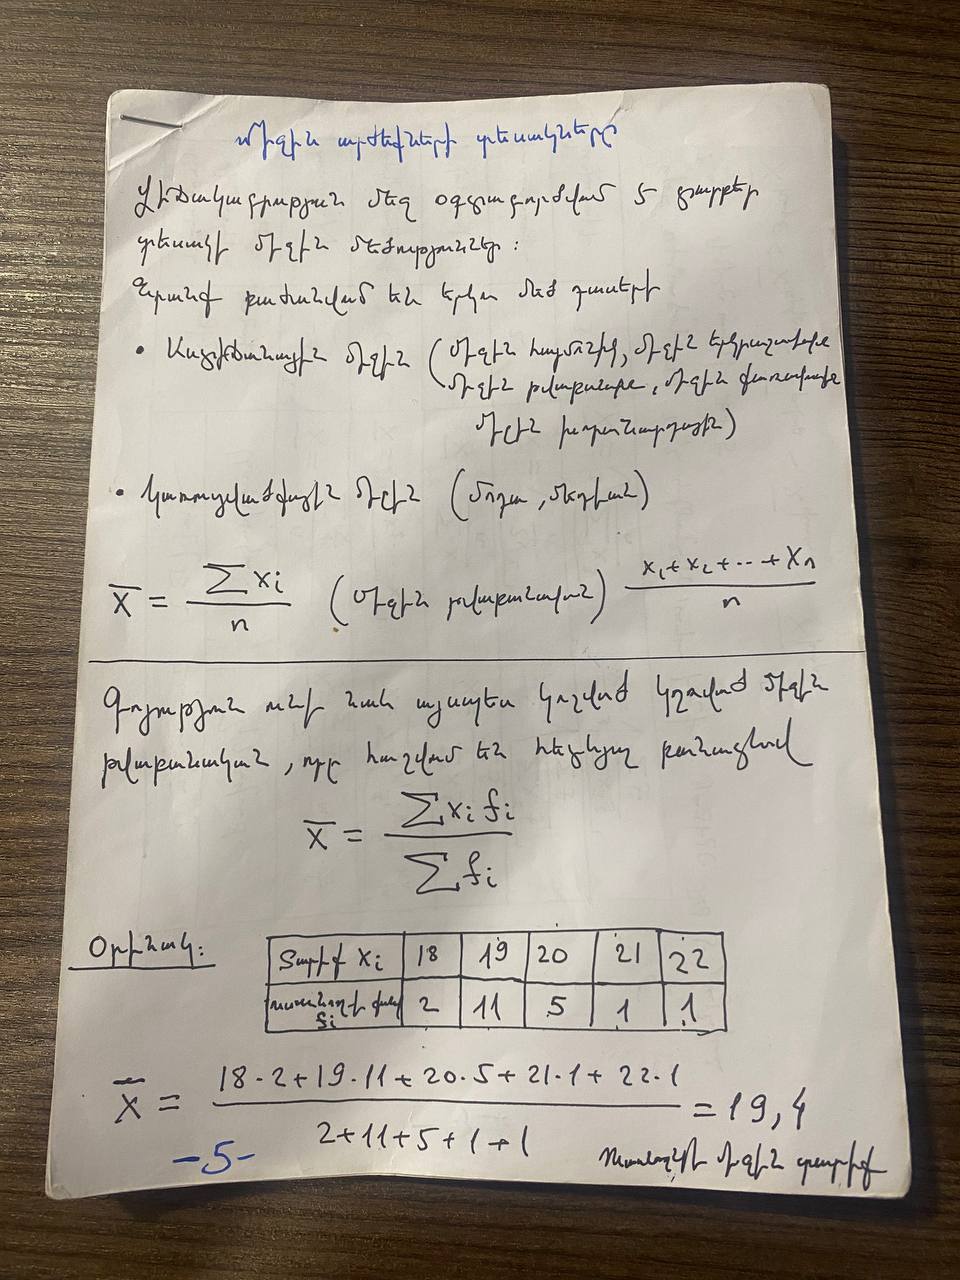 Միջին արժեքների տեսակները
Վիճակագրության մեջ օգտագործվում 5 տարբեր
տեսակի միջին մեծություններ:
Դրանք բաժանվում են երկու մեծ դասերի
• Աստիճանային միջին (միջին հարմոնիկ, միջին երկրաչափական
միջին թվաբանական, միջին քառակուսի
միջին խորանարդային)
• Կառուցվածքային միջին (մոդա, մեդիան)
x̄ = ∑xi / n (Միջին թվաբանական) x1+x2+...+xn / n
Գոյություն ունի նաև այսպես կոչված կշռված միջին
թվաբանական, որը հաշվում են հետևյալ բանաձևով
x̄ = ∑xi fi / ∑fi
Օրինակ:
Տարիք xi 18 19 20 21 22
ուսանողի քան fi 2 11 5 1 1
x̄ = 18·2+19·11+20·5+21·1+22·1 / 2+11+5+1+1 = 19,4
-5- Ուսանողների միջին տարիք